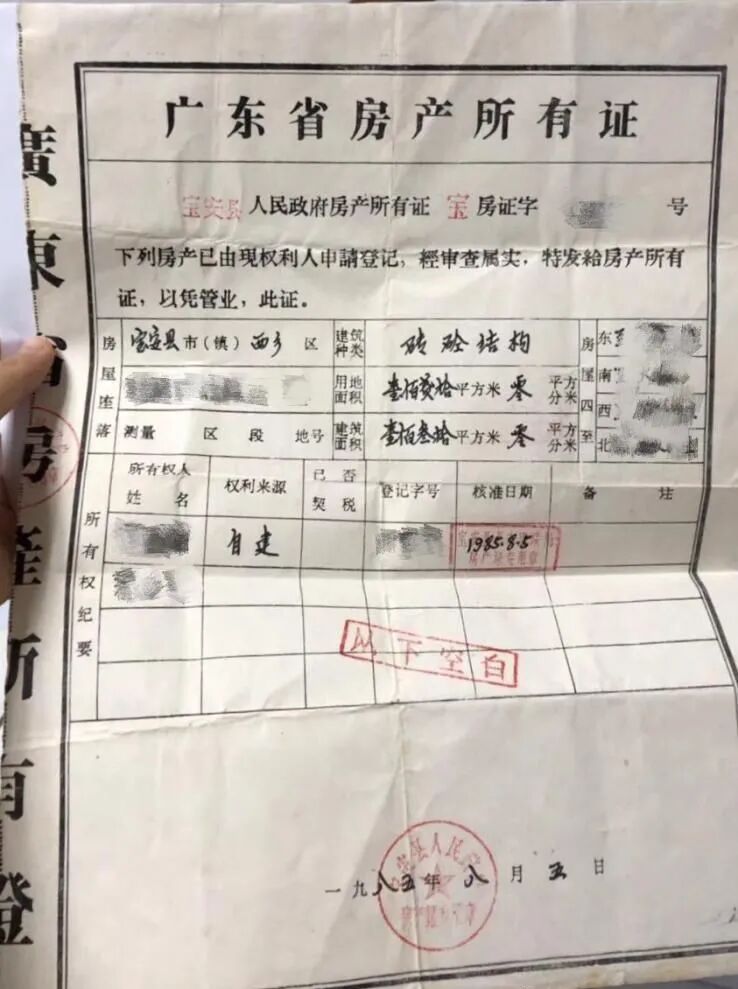 廣東省房産所有證
广东省房产所有证
宝安县人民政府房产所有证 宝 房证字 号
下列房产已由现权利人申請登记，經审查属实，特发給房产所有
证，以凭管业，此证。
房屋座落 宝安县市(镇)西乡区 建筑种类 砖砼结构 房屋四至 东
用地面积 壹佰贰拾平方米零平方分米 南
西
测量 区 段 地号 建筑面积 壹佰叁拾平方米零平方分米 北
所有权纪要 所有权人姓名 权利来源 已否契税 登记字号 核准日期 备 注
自建 1985.8.5
房产
以下空白
一九八五年八月五日
县人民